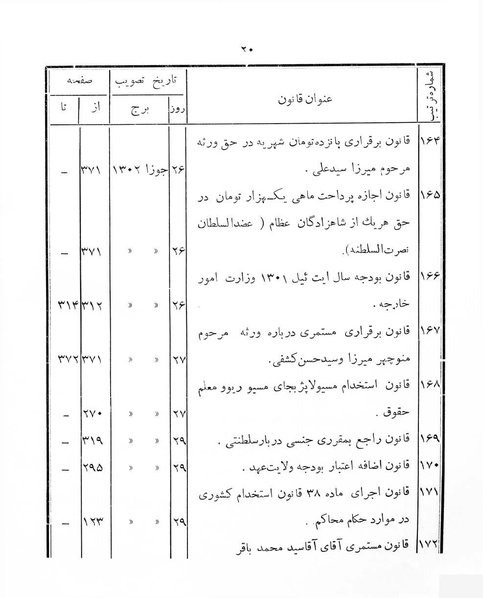 ۲۰
شماره ترتیب
عنوان قانون
تاریخ تصویب
صفحه
روز
برج
از
تا
۱۶۴ قانون برقراری پانزده‌تومان شهریه در حق ورثه
مرحوم میرزا سیدعلی . ۲۶ جوزا ۱۳۰۲ ۳۷۱ –
۱۶۵ قانون اجازه پرداخت ماهی یکهزار تومان در
حق هریك از شاهزادگان عظام ( عضدالسلطان
نصرت‌السلطنه). ۲۶ » » ۳۷۱ –
۱۶۶ قانون بودجه سال ایت ئیل ۱۳۰۱ وزارت امور
خارجه . ۲۶ » » ۳۱۲ ۳۱۴
۱۶۷ قانون برقراری مستمری درباره ورثه مرحوم
منوچهر میرزا وسیدحسن‌کشفی. ۲۷ » » ۳۷۱ ۳۷۲
۱۶۸ قانون استخدام مسیولاپژبجای مسیو ریوو معلم
حقوق . ۲۷ » » ۲۷۰ –
۱۶۹ قانون راجع بمقرری جنسی دربارسلطنتی . ۲۹ » » ۳۱۹ –
۱۷۰ قانون اضافه اعتبار بودجه ولایت‌عهد . ۲۹ » » ۲۹۵ –
۱۷۱ قانون اجرای ماده ۳۸ قانون استخدام کشوری
در موارد حکام محاکم . ۲۹ » » ۱۲۳ –
۱۷۲ قانون مستمری آقای آقاسید محمد باقر